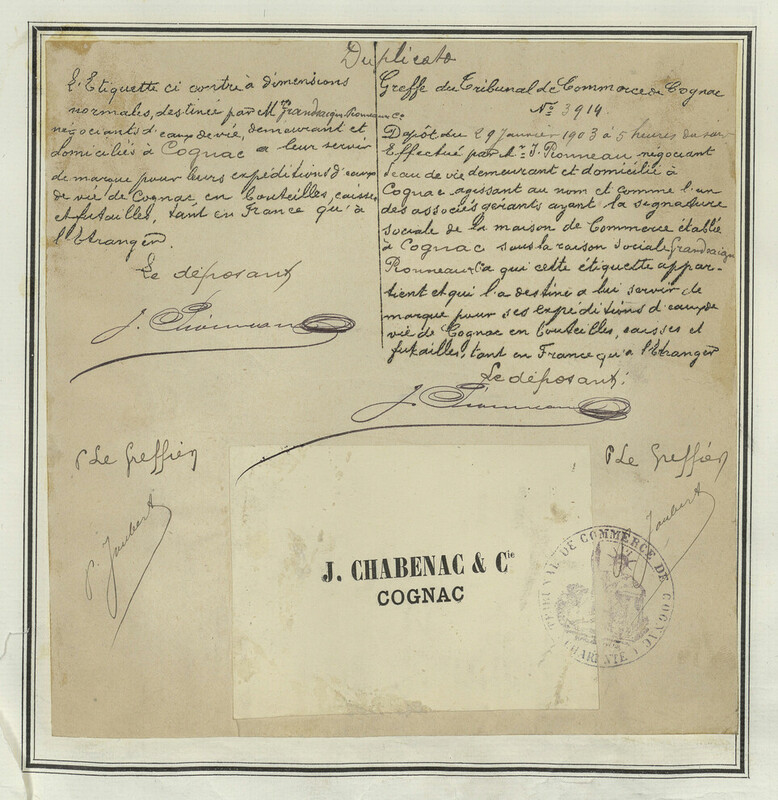 Duplicato
L'Etiquette ci contre à dimensions
normales, destinée par Mrs Grandsaigne Ronneau & Cie
négociants d'eaux de vie, demeurant et
domiciliés à Cognac a leur servir
de marque pour leurs expéditions d'eaux
de vie de Cognac, en bouteilles, caisses
et futailles, tant en France qu'à
l'Etranger.
Le déposant
J. Ronneau
Greffe du Tribunal de Commerce de Cognac
No 3914.
Depôt du 29 Janvier 1903 à 5 heures du soir
Effectué par Mr J. Ronneau négociant
eau de vie demeurant et domicilié à
Cognac agissant au nom et comme l'un
des associés gérants ayant la signature
sociale de la maison de Commerce établie
à Cognac sous la raison sociale Grandsaigne
Ronneau & Ca qui cette étiquette appar-
tient et qui l'a destiné a lui servir de
marque pour ses expéditions d'eaux de
vie de Cognac en bouteilles, caisses et
futailles, tant en France qu'à l'Etranger
Le déposant:
J. Ronneau
P Le Greffier
P. Joubert
P Le Greffier
Joubert
J. CHABENAC & Cie
COGNAC
TRIBUNAL DE COMMERCE DE COGNAC
CHARENTE